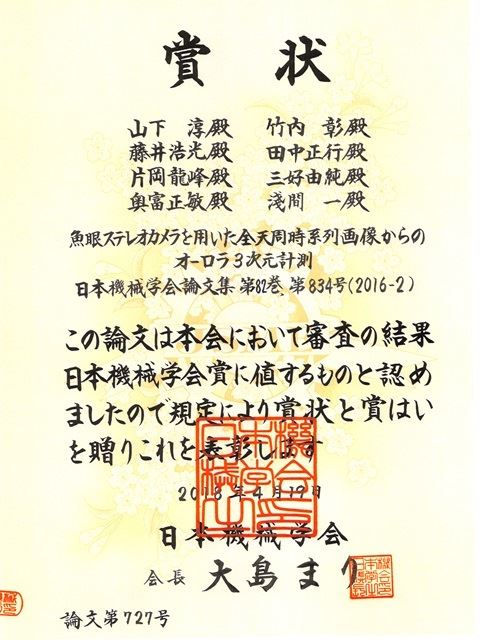 賞状
山下 淳殿 竹内 彰殿
藤井浩光殿 田中正行殿
片岡龍峰殿 三好由純殿
奥富正敏殿 淺間 一殿
魚眼ステレオカメラを用いた全天周時系列画像からの
オーロラ3次元計測
日本機械学会論文集 第82巻、第834号(2016-2)
この論文は本会において審査の結果
日本機械学会賞に値するものと認め
ましたので規定により賞状と賞はい
を贈りこれを表彰します
2018年4月19日
日本機械学会
会長 大島まり
論文第727号